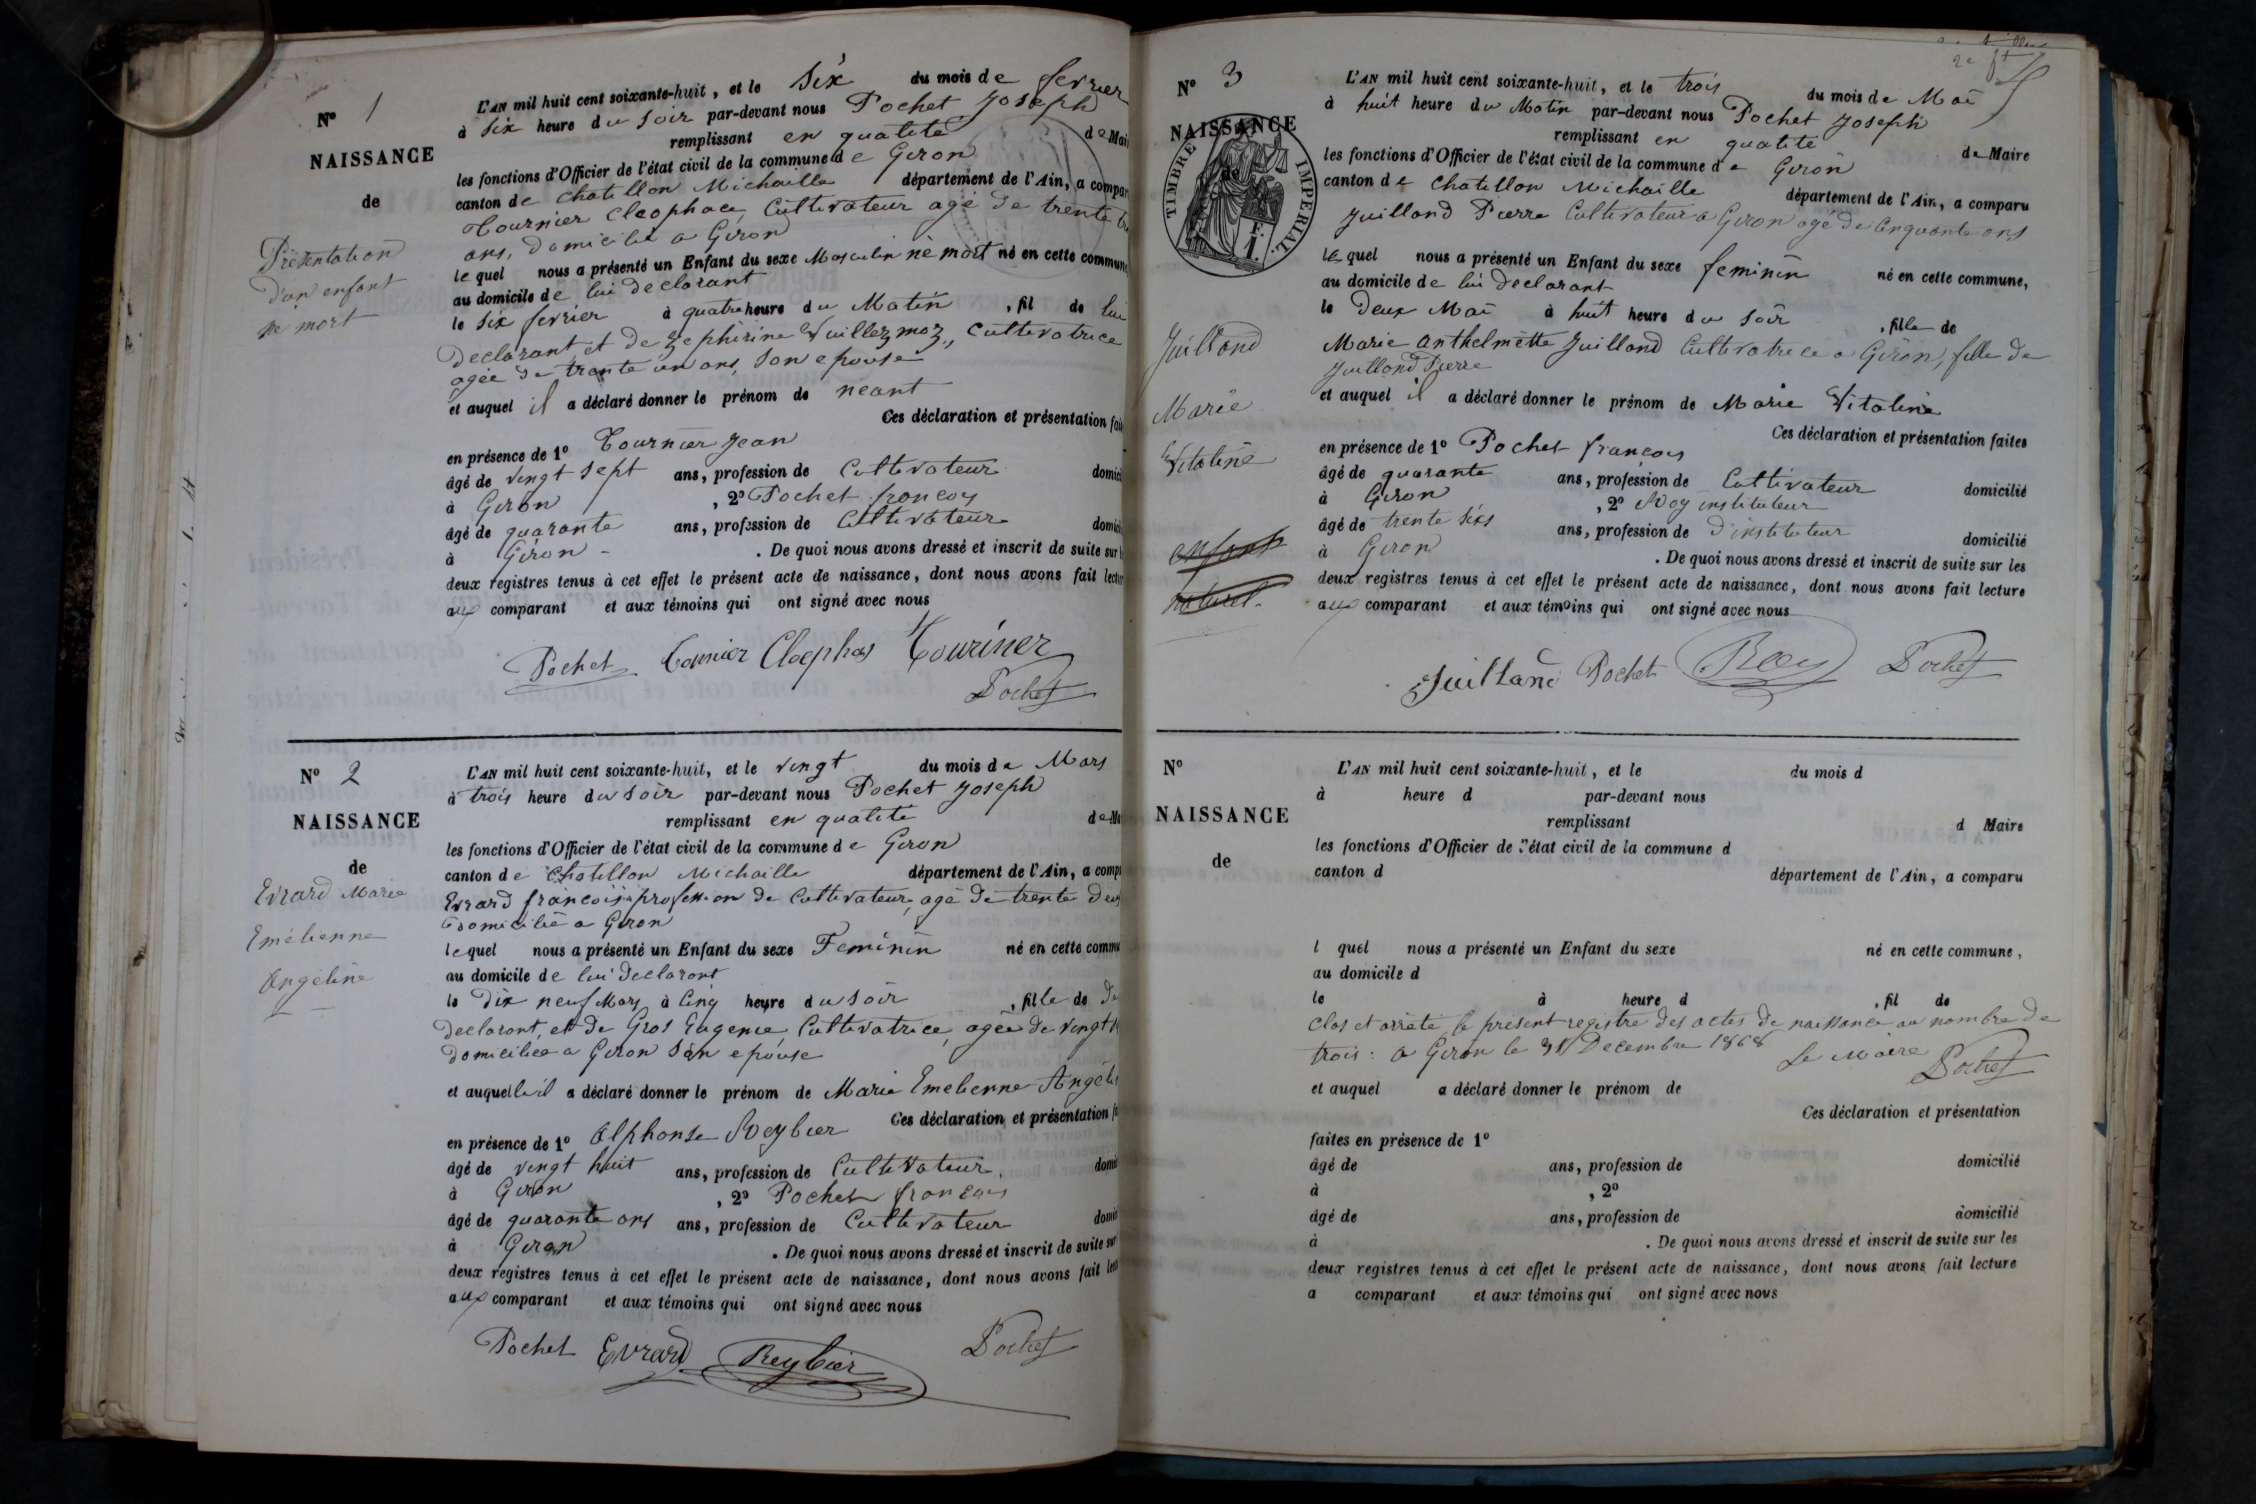 N° 1
NAISSANCE
de
Présentation
d'un enfant
né mort
L'AN mil huit cent soixante-huit, et le six du mois de fevrier
à six heure du soir par-devant nous Pochet Joseph
remplissant en qualité de Mai
les fonctions d'Officier de l'état civil de la commune de Giron
canton de Chatillon Michaille département de l'Ain, a compar
Tournier Cleophace, Cultivateur agé de trente
ans, domicilié a Giron
lequel nous a présenté un Enfant du sexe Masculin né mort né en cette commune
au domicile de lui declarant
le six fevrier à quatre heure du Matin, fil de lui
Declarant et de Zephirine Vuillezmoz, Cultivatrice
agée de trente un ans, son epouse
et auquel il a déclaré donner le prénom de neant
Ces déclaration et présentation fai
en présence de 1° Tournier Jean
âgé de vingt sept ans, profession de Cultivateur domici
à Giron, 2° Pochet françois
âgé de quarante ans, profession de Cultivateur domici
à Giron. De quoi nous avons dressé et inscrit de suite sur
deux registres tenus à cet effet le présent acte de naissance, dont nous avons fait lectur
aux comparant et aux témoins qui ont signé avec nous
Pochet Tournier Cleophas Tourinier
Pochet
N° 2
NAISSANCE
de
Evrard Marie
Emelienne
Angeline
L'AN mil huit cent soixante-huit, et le vingt du mois de Mars
à trois heure du soir par-devant nous Pochet Joseph
remplissant en qualité de Ma
les fonctions d'Officier de l'état civil de la commune de Giron
canton de Chatillon Michaille département de l'Ain, a comp
Evrard françois profession de Cultivateur, agé de trente deux
domicilié a Giron
lequel nous a présenté un Enfant du sexe Feminin né en cette commu
au domicile de lui declarant
le dix neuf Mars à Cinq heure du soir, fille de
declarant, et de Gros Eugenie Cultivatrice, agée de vingt
domiciliée a Giron son epouse
et auquel il a déclaré donner le prénom de Marie Emelienne Angéli
Ces déclaration et présentation
en présence de 1° Alphonse Reybier
âgé de vingt huit ans, profession de Cultivateur, domi
à Giron, 2° Pochet françois
âgé de quarante ans ans, profession de Cultivateur domi
à Giron. De quoi nous avons dressé et inscrit de suite sur
deux registres tenus à cet effet le présent acte de naissance, dont nous avons fait lect
aux comparant et aux témoins qui ont signé avec nous
Pochet Evrard Reybier Pochet
2e ft
N° 3
NAISSANCE
de
TIMBRE IMPERIAL
F. 1.
Juilland
Marie
Vitaline
enfant
naturel
L'AN mil huit cent soixante-huit, et le trois du mois de Mai
à huit heure du Matin par-devant nous Pochet Joseph
remplissant en qualité de Maire
les fonctions d'Officier de l'état civil de la commune de Giron
canton de Chatillon Michaille département de l'Ain, a comparu
Juilland Pierre Cultivateur a Giron agé de Cinquante ans
lequel nous a présenté un Enfant du sexe feminin né en cette commune,
au domicile de lui declarant
le Deux Mai à huit heure du soir, fille de
Marie Anthelmette Juilland Cultivatrice a Giron, fille de
Juilland Pierre
et auquel il a déclaré donner le prénom de Marie Vitaline
Ces déclaration et présentation faites
en présence de 1° Pochet françois
âgé de quarante ans, profession de Cultivateur domicilié
à Giron, 2° Roy instituteur
âgé de trente sixs ans, profession de d'instituteur domicilié
à Giron. De quoi nous avons dressé et inscrit de suite sur les
deux registres tenus à cet effet le présent acte de naissance, dont nous avons fait lecture
aux comparant et aux témoins qui ont signé avec nous
Juilland Pochet Roy Pochet
N°
NAISSANCE
de
L'AN mil huit cent soixante-huit, et le du mois d
à heure d par-devant nous
remplissant d Maire
les fonctions d'Officier de l'état civil de la commune d
canton d département de l'Ain, a comparu
l quel nous a présenté un Enfant du sexe né en cette commune,
au domicile d
le à heure d, fil de
Clos et arrete le présent registre des actes de naissance au nombre de
trois : a Giron le 31 Decembre 1868 Le Maire Pochet
et auquel a déclaré donner le prénom de
Ces déclaration et présentation
faites en présence de 1°
âgé de ans, profession de domicilié
à, 2°
âgé de ans, profession de domicilié
à. De quoi nous avons dressé et inscrit de suite sur les
deux registres tenus à cet effet le présent acte de naissance, dont nous avons fait lecture
a comparant et aux témoins qui ont signé avec nous